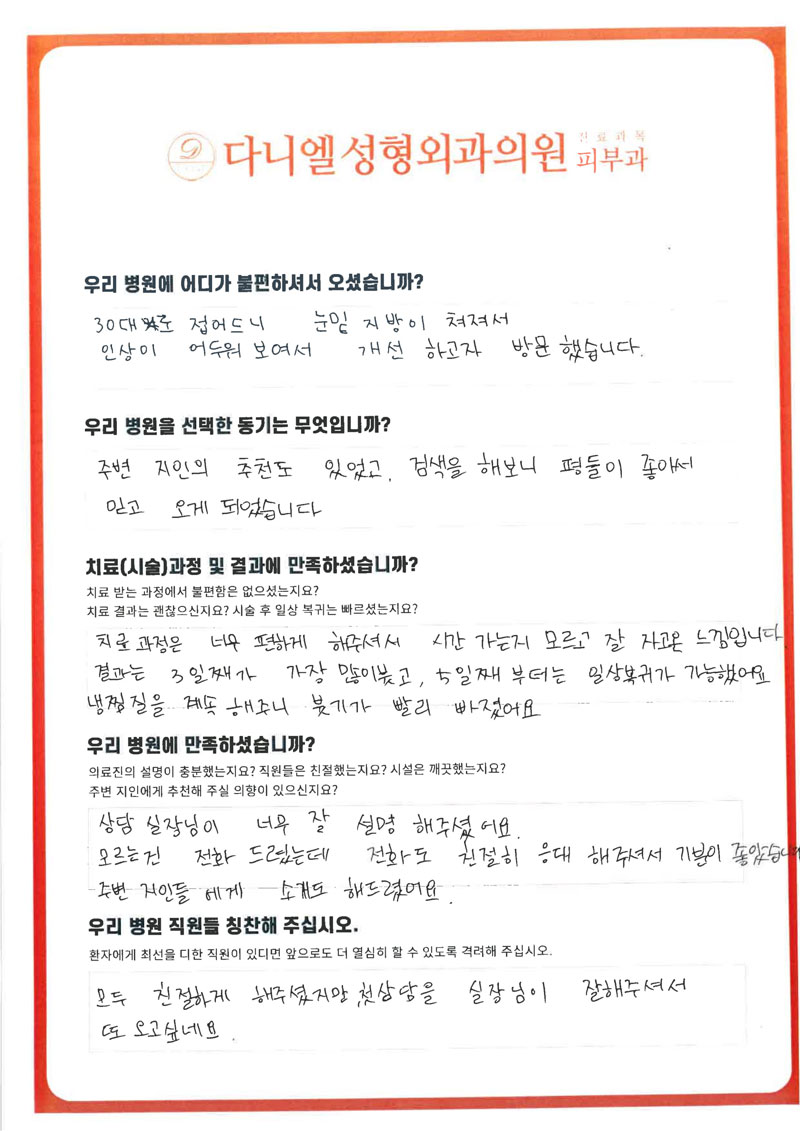 다니엘성형외과의원 진료과목 피부과
우리 병원에 어디가 불편하셔서 오셨습니까?
30대로 접어드니 눈밑 지방이 쳐져서
인상이 어두워 보여서 개선 하고자 방문 했습니다.
우리 병원을 선택한 동기는 무엇입니까?
주변 지인의 추천도 있었고, 검색을 해보니 평들이 좋아서
믿고 오게 되었습니다
치료(시술)과정 및 결과에 만족하셨습니까?
치료 받는 과정에서 불편함은 없으셨는지요?
치료 결과는 괜찮으신지요? 시술 후 일상 복귀는 빠르셨는지요?
치료 과정은 너무 편하게 해주셔서 시간 가는지 모르고 잘 자고온 느낌입니다.
결과는 3일째가 가장 많이붓고, 5일째 부터는 일상복귀가 가능했어요
냉찜질을 계속 해주니 붓기가 빨리 빠졌어요
우리 병원에 만족하셨습니까?
의료진의 설명이 충분했는지요? 직원들은 친절했는지요? 시설은 깨끗했는지요?
주변 지인에게 추천해 주실 의향이 있으신지요?
상담 실장님이 너무 잘 설명 해주셨어요.
모르는건 전화 드렸는데 전화도 친절히 응대 해주셔서 기분이 좋았습니다
주변 지인들에게 소개도 해드렸어요.
우리 병원 직원들 칭찬해 주십시오.
환자에게 최선을 다한 직원이 있다면 앞으로도 더 열심히 할 수 있도록 격려해 주십시오.
모두 친절하게 해주셨지만, 첫상담을 실장님이 잘해주셔서
또 오고싶네요.